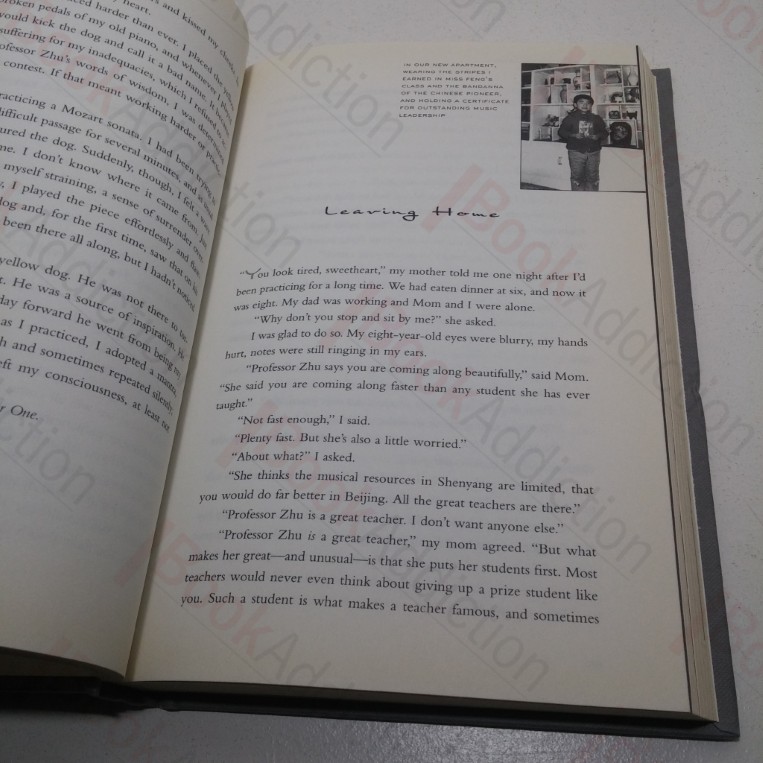 and kissed my cheek.
my heart.
harder than ever. I placed the
broken pedals of my old piano, and whenever
would kick the dog and call it a bad name.
suffering for my inadequacies, which I refused to
Professor Zhu's words of wisdom. I was determined
contest. If that meant working harder or
racticing a Mozart sonata. I had been trying
difficult passage for several minutes, and
ured the dog. Suddenly, though, I felt a
me. I don't know where it came from.
myself straining, a sense of surrender
I played the piece effortlessly and
dog and, for the first time, saw that on his
been there all along, but I hadn't noticed
yellow dog. He was not there to be
t. He was a source of inspiration. He
day forward he went from being my
as I practiced, I adopted a mantra,
h and sometimes repeated silently.
eft my consciousness, at least not
r One.
IN OUR NEW APARTMENT,
WEARING THE STRIPES I
EARNED IN MISS FENG'S
CLASS AND THE BANDANNA
OF THE CHINESE PIONEER,
AND HOLDING A CERTIFICATE
FOR OUTSTANDING MUSIC
LEADERSHIP
Leaving Home
"You look tired, sweetheart," my mother told me one night after I'd
been practicing for a long time. We had eaten dinner at six, and now it
was eight. My dad was working and Mom and I were alone.
"Why don't you stop and sit by me?" she asked.
I was glad to do so. My eight-year-old eyes were blurry, my hands
hurt, notes were still ringing in my ears.
"Professor Zhu says you are coming along beautifully," said Mom.
"She said you are coming along faster than any student she has ever
taught."
"Not fast enough," I said.
"Plenty fast. But she's also a little worried."
"About what?" I asked.
"She thinks the musical resources in Shenyang are limited, that
you would do far better in Beijing. All the great teachers are there."
"Professor Zhu is a great teacher. I don't want anyone else."
"Professor Zhu is a great teacher," my mom agreed. "But what
makes her great—and unusual—is that she puts her students first. Most
teachers would never even think about giving up a prize student like
you. Such a student is what makes a teacher famous, and sometimes